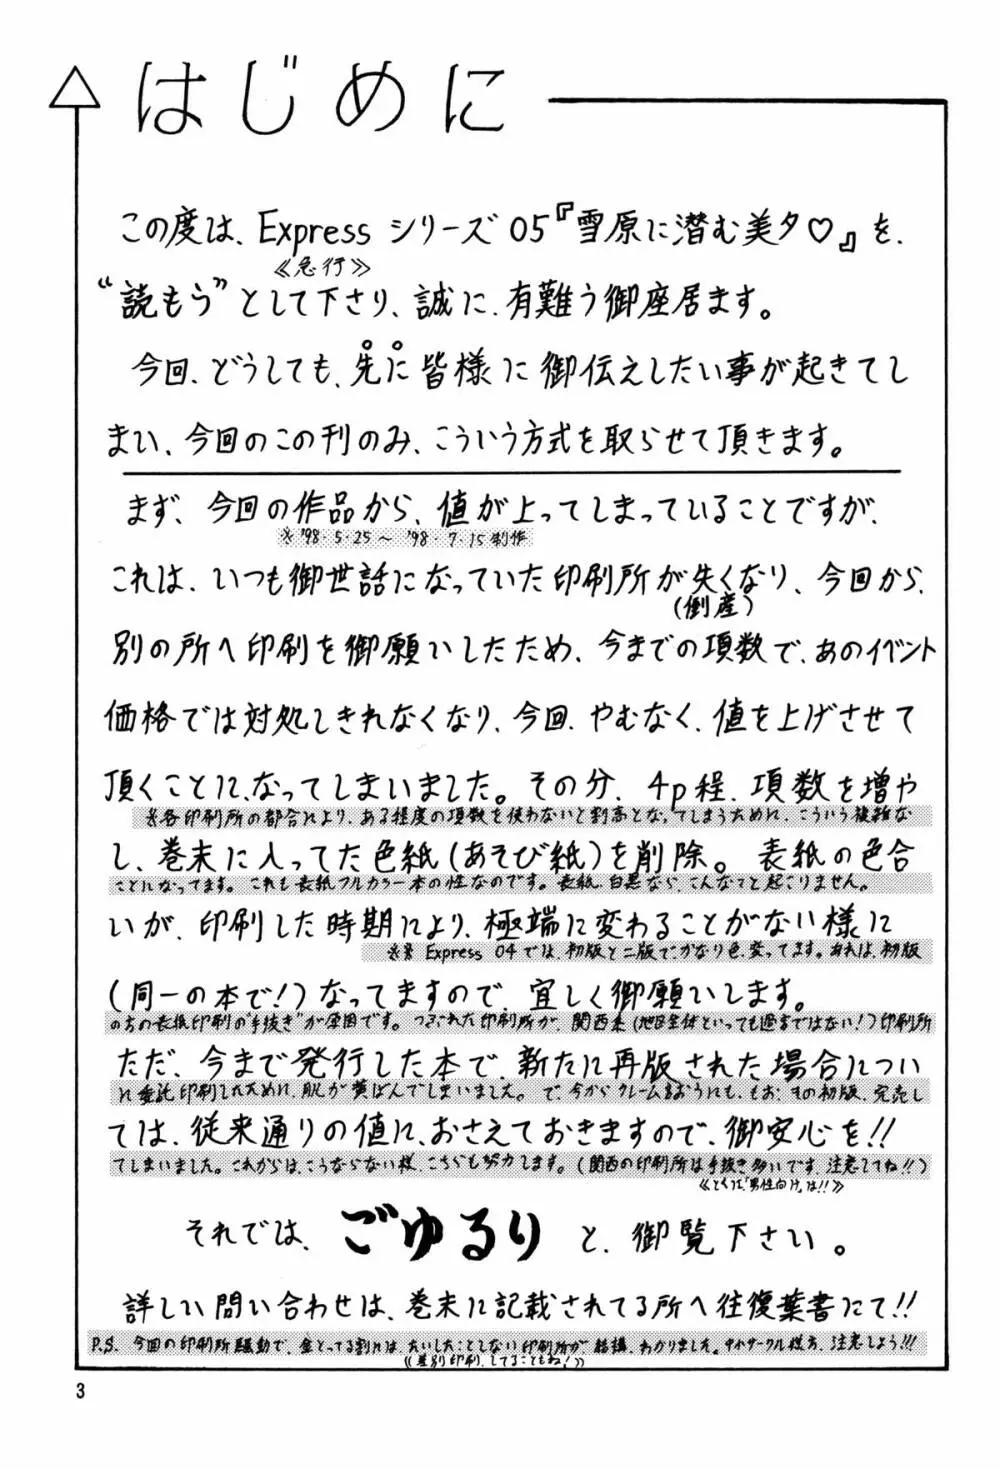 はじめに
この度は、Expressシリーズ05『雪原に潜む美夕♡』を、
《急行》
“読もう”として下さり、誠に、有難う御座居ます。
今回、どうしても、先に皆様に御伝えしたい事が起きてし
まい、今回のこの刊のみ、こういう方式を取らせて頂きます。
まず、今回の作品から、値が上ってしまっていることですが、
※'98・5・25～'98・7・15制作
これは、いつも御世話になっていた印刷所が失くなり、今回から、
(倒産)
別の所へ印刷を御願いしたため、今までの項数で、あのイベント
価格では対処しきれなくなり、今回、やむなく、値を上げさせて
頂くことに、なってしまいました。その分、4p程、項数を増や
※各印刷所の都合により、ある程度の項数を使わないと割高となってしまうために、こういう複雑な
し、巻末に入ってた色紙(あそび紙)を削除。表紙の色合
ことになってます。これも表紙フルカラー本の性なのです。表紙、白黒なら、こんなこと起こりません。
いが、印刷した時期により、極端に変わることがない様に
※※ Express 04では、初版と二版で、かなり色、変ってます。あれは、初版
(同一の本で！)なってますので、宜しく御願いします。
のちの表紙印刷の“手抜き”が原因です。つぶれた印刷所が、関西系(地区全体といっても過言ではない！)印刷所
ただ、今まで発行した本で、新たに再版された場合につい
に委託印刷したために、肌が黄ばんでしまいました。で、今からクレームをおうにも、もお、その初版、完売し
ては、従来通りの値に、おさえておきますので、御安心を!!
てしまいました。これからは、こうならない様、こちらも努力します。(関西の印刷所は手抜き多いです、注意してね!!)
《とくに「男性向け」は!!》
それでは、ごゆるりと、御覧下さい。
詳しい問い合わせは、巻末に記載されてる所へ往復葉書にて!!
P.S. 今回の印刷所騒動で、金とってる割には、たいしたことしない印刷所が、結構、わかりました。サークル様方、注意しよう!!!
《(差別印刷、してることもね！)》
3